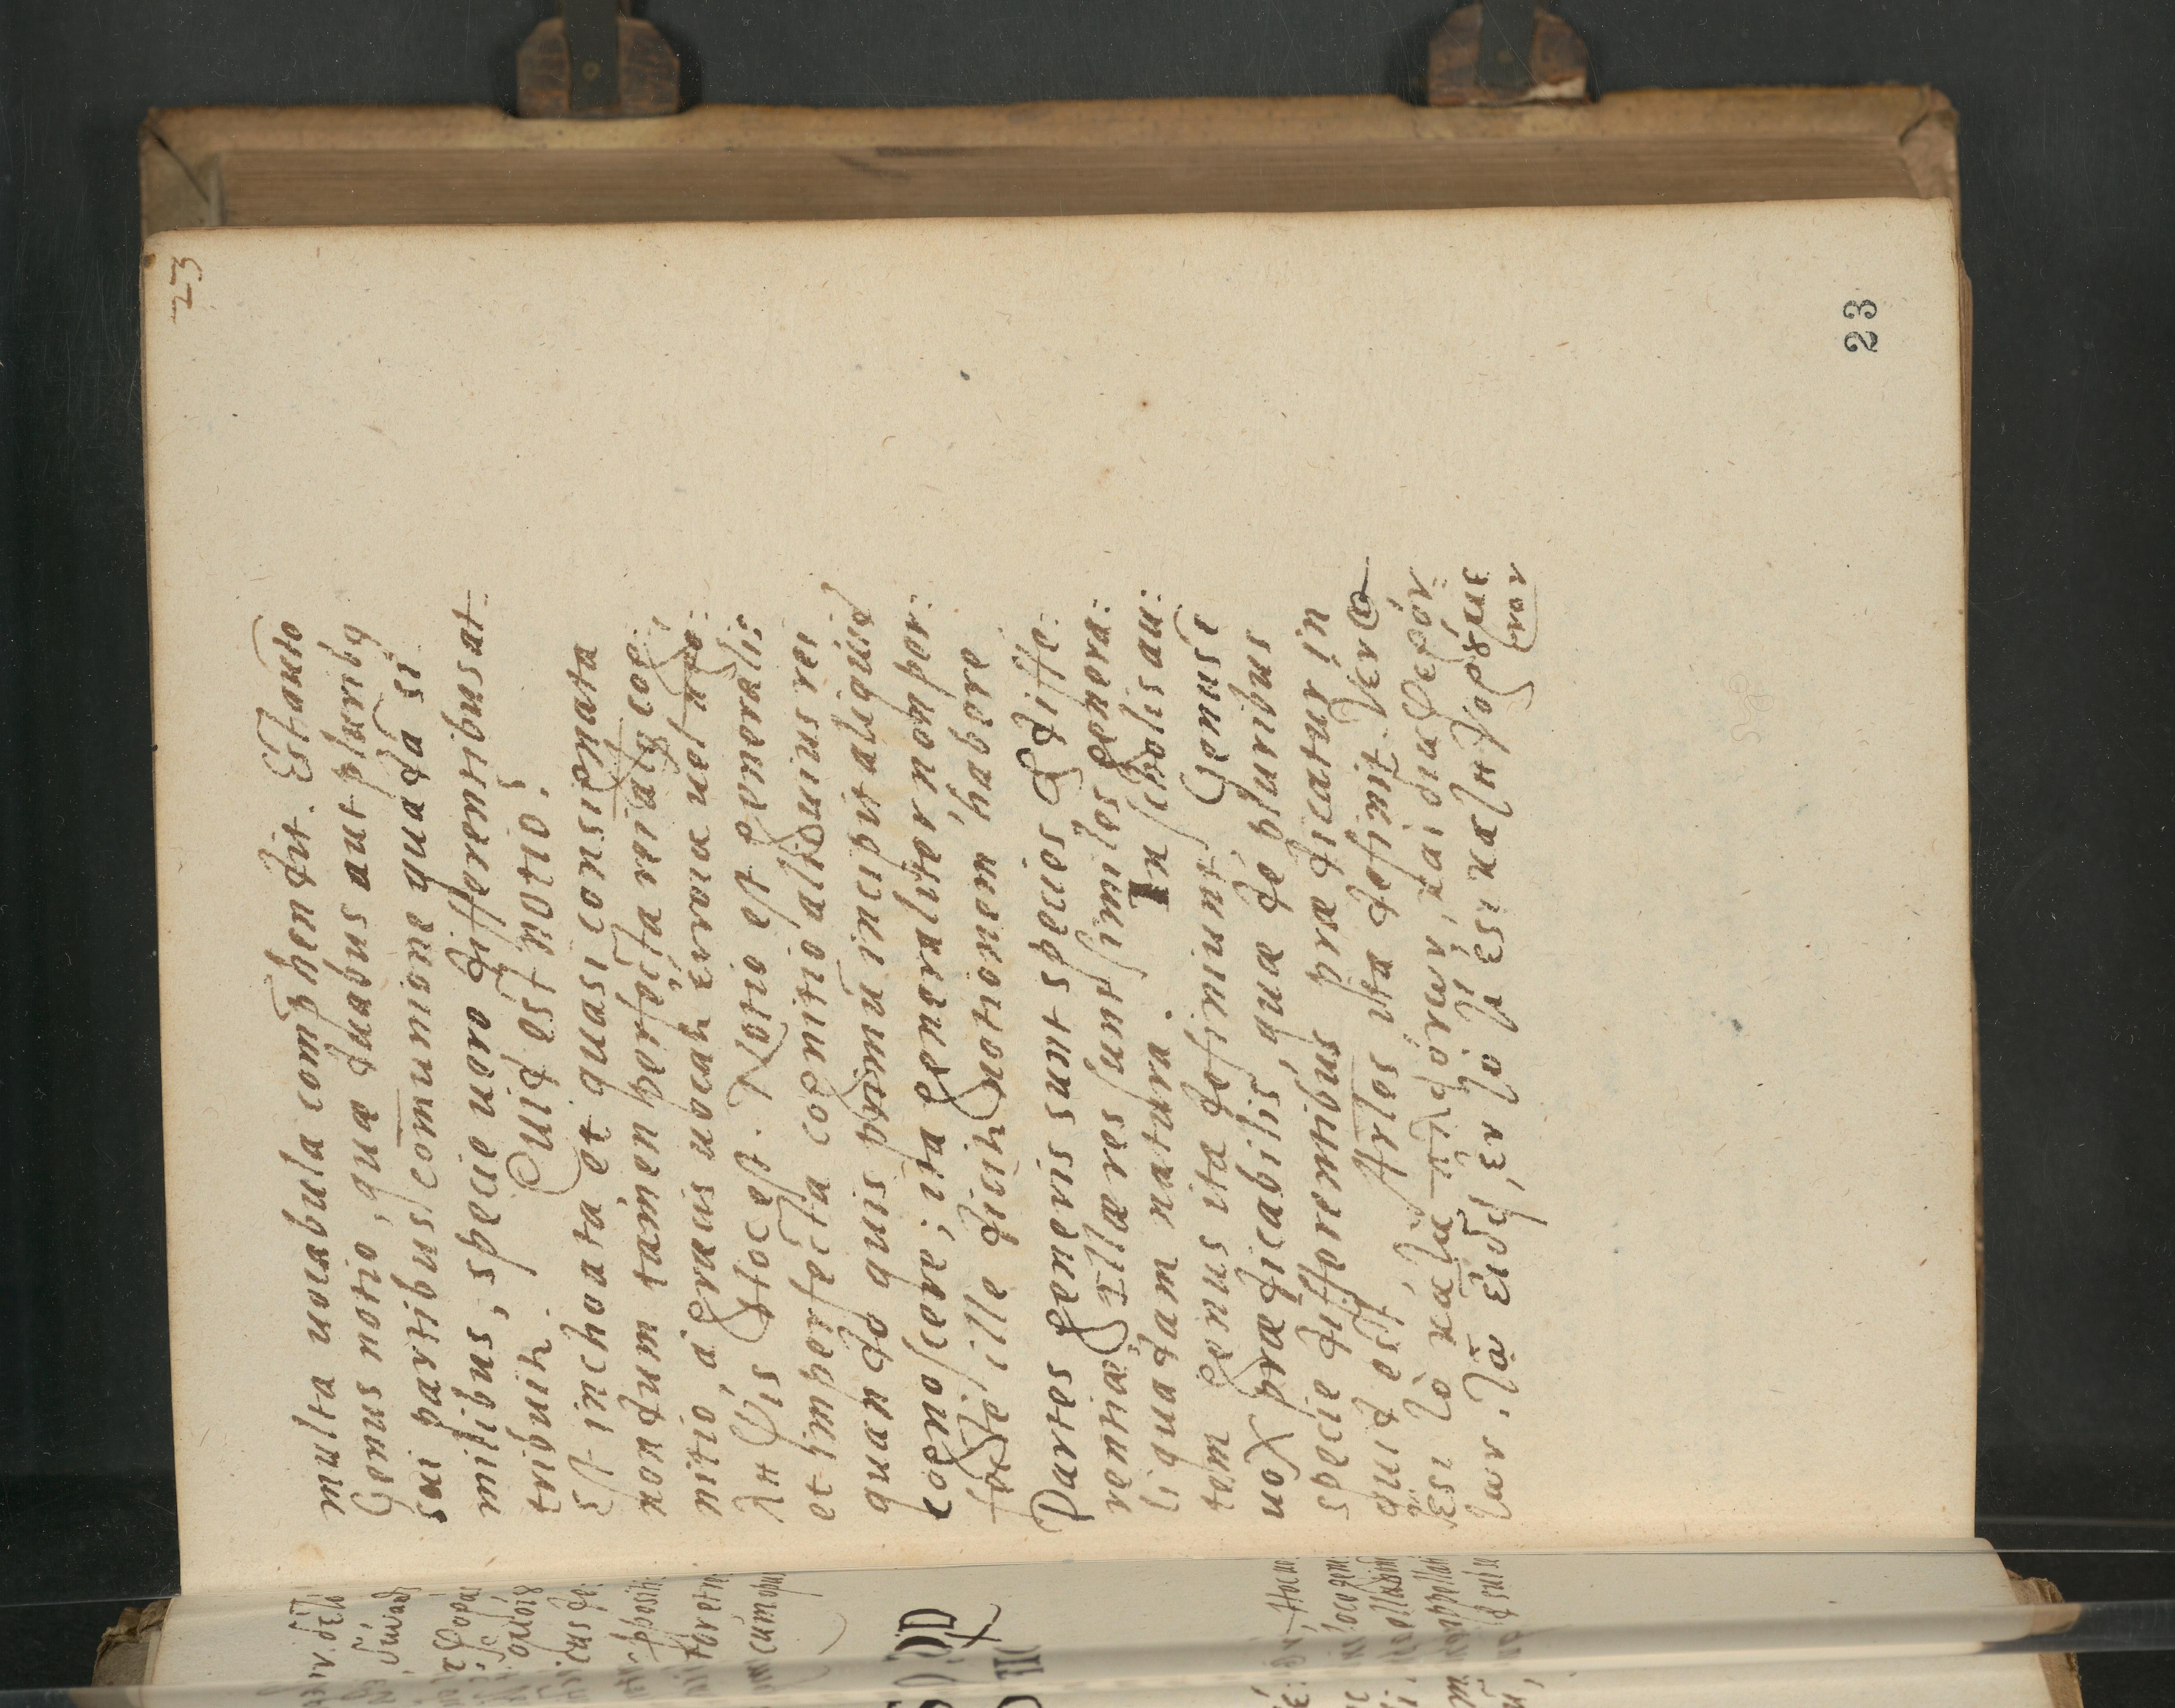 23
multa uocabula comp̄hendit. Est aut̄
Genus notio, quæ duabus aut pluribꝫ
sui partibus com̄unione quadā si
milibus, specie uero differentibus at=
tribuit̄. Quid est notio?
Est inchoata et quasi consignata
nondum tamen perfecta rei alicꝰ cog:
nitio, à græcis uocat̄ ἔννοια uel προ:
ληψις Hoc est. Notio est generalis
et imperfecta cognitio alicuius rei
quando quis primū incipit aliquid
cognoscere; ita generaliter non per:
fecte ille dicit̄ notionem habere
Partes generis sunt species & diffe:
rentiæ, Illæ res sunt similes genera:
li quadam natura. In scholis au:
tem genus ita definiunt, Genus é
uox prædicabilis, quæ de pluribus
specie differentibus prædicatur in
quid est, Arles ita definit. Γένος
ἐςι τὸ κατὰ πλειόνων, καὶ διαφερόν=
των. τῶ εἴδει, ἐν τῶ τί ἐςι κατηγορούμε
νον
23